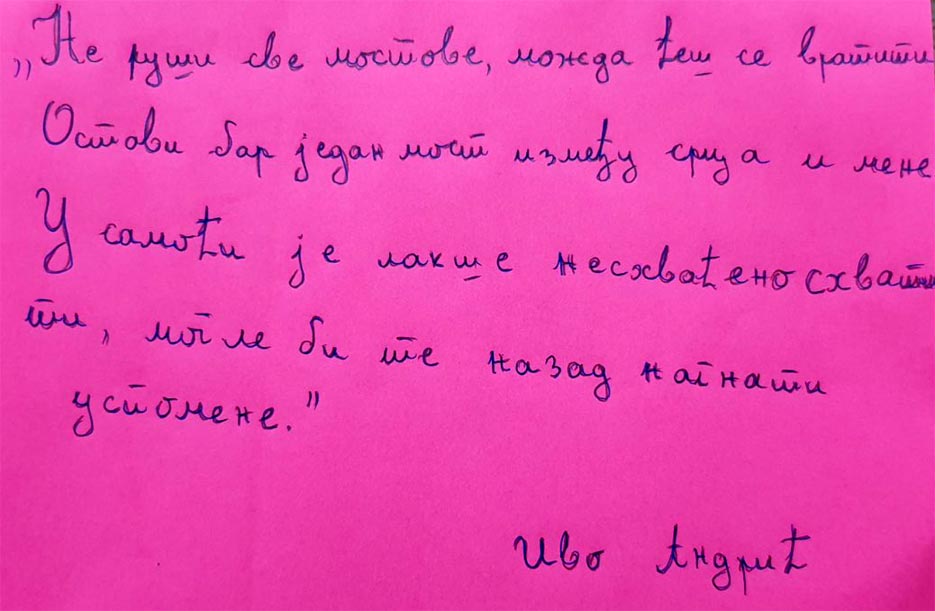 „Не руши све мостове, можда ћеш се вратити
Остави бар један мост између срца и мене
У самоћи је лакше несхваћено схвати
ти, могле би те назад нагнати
успомене.”
Иво Андрић